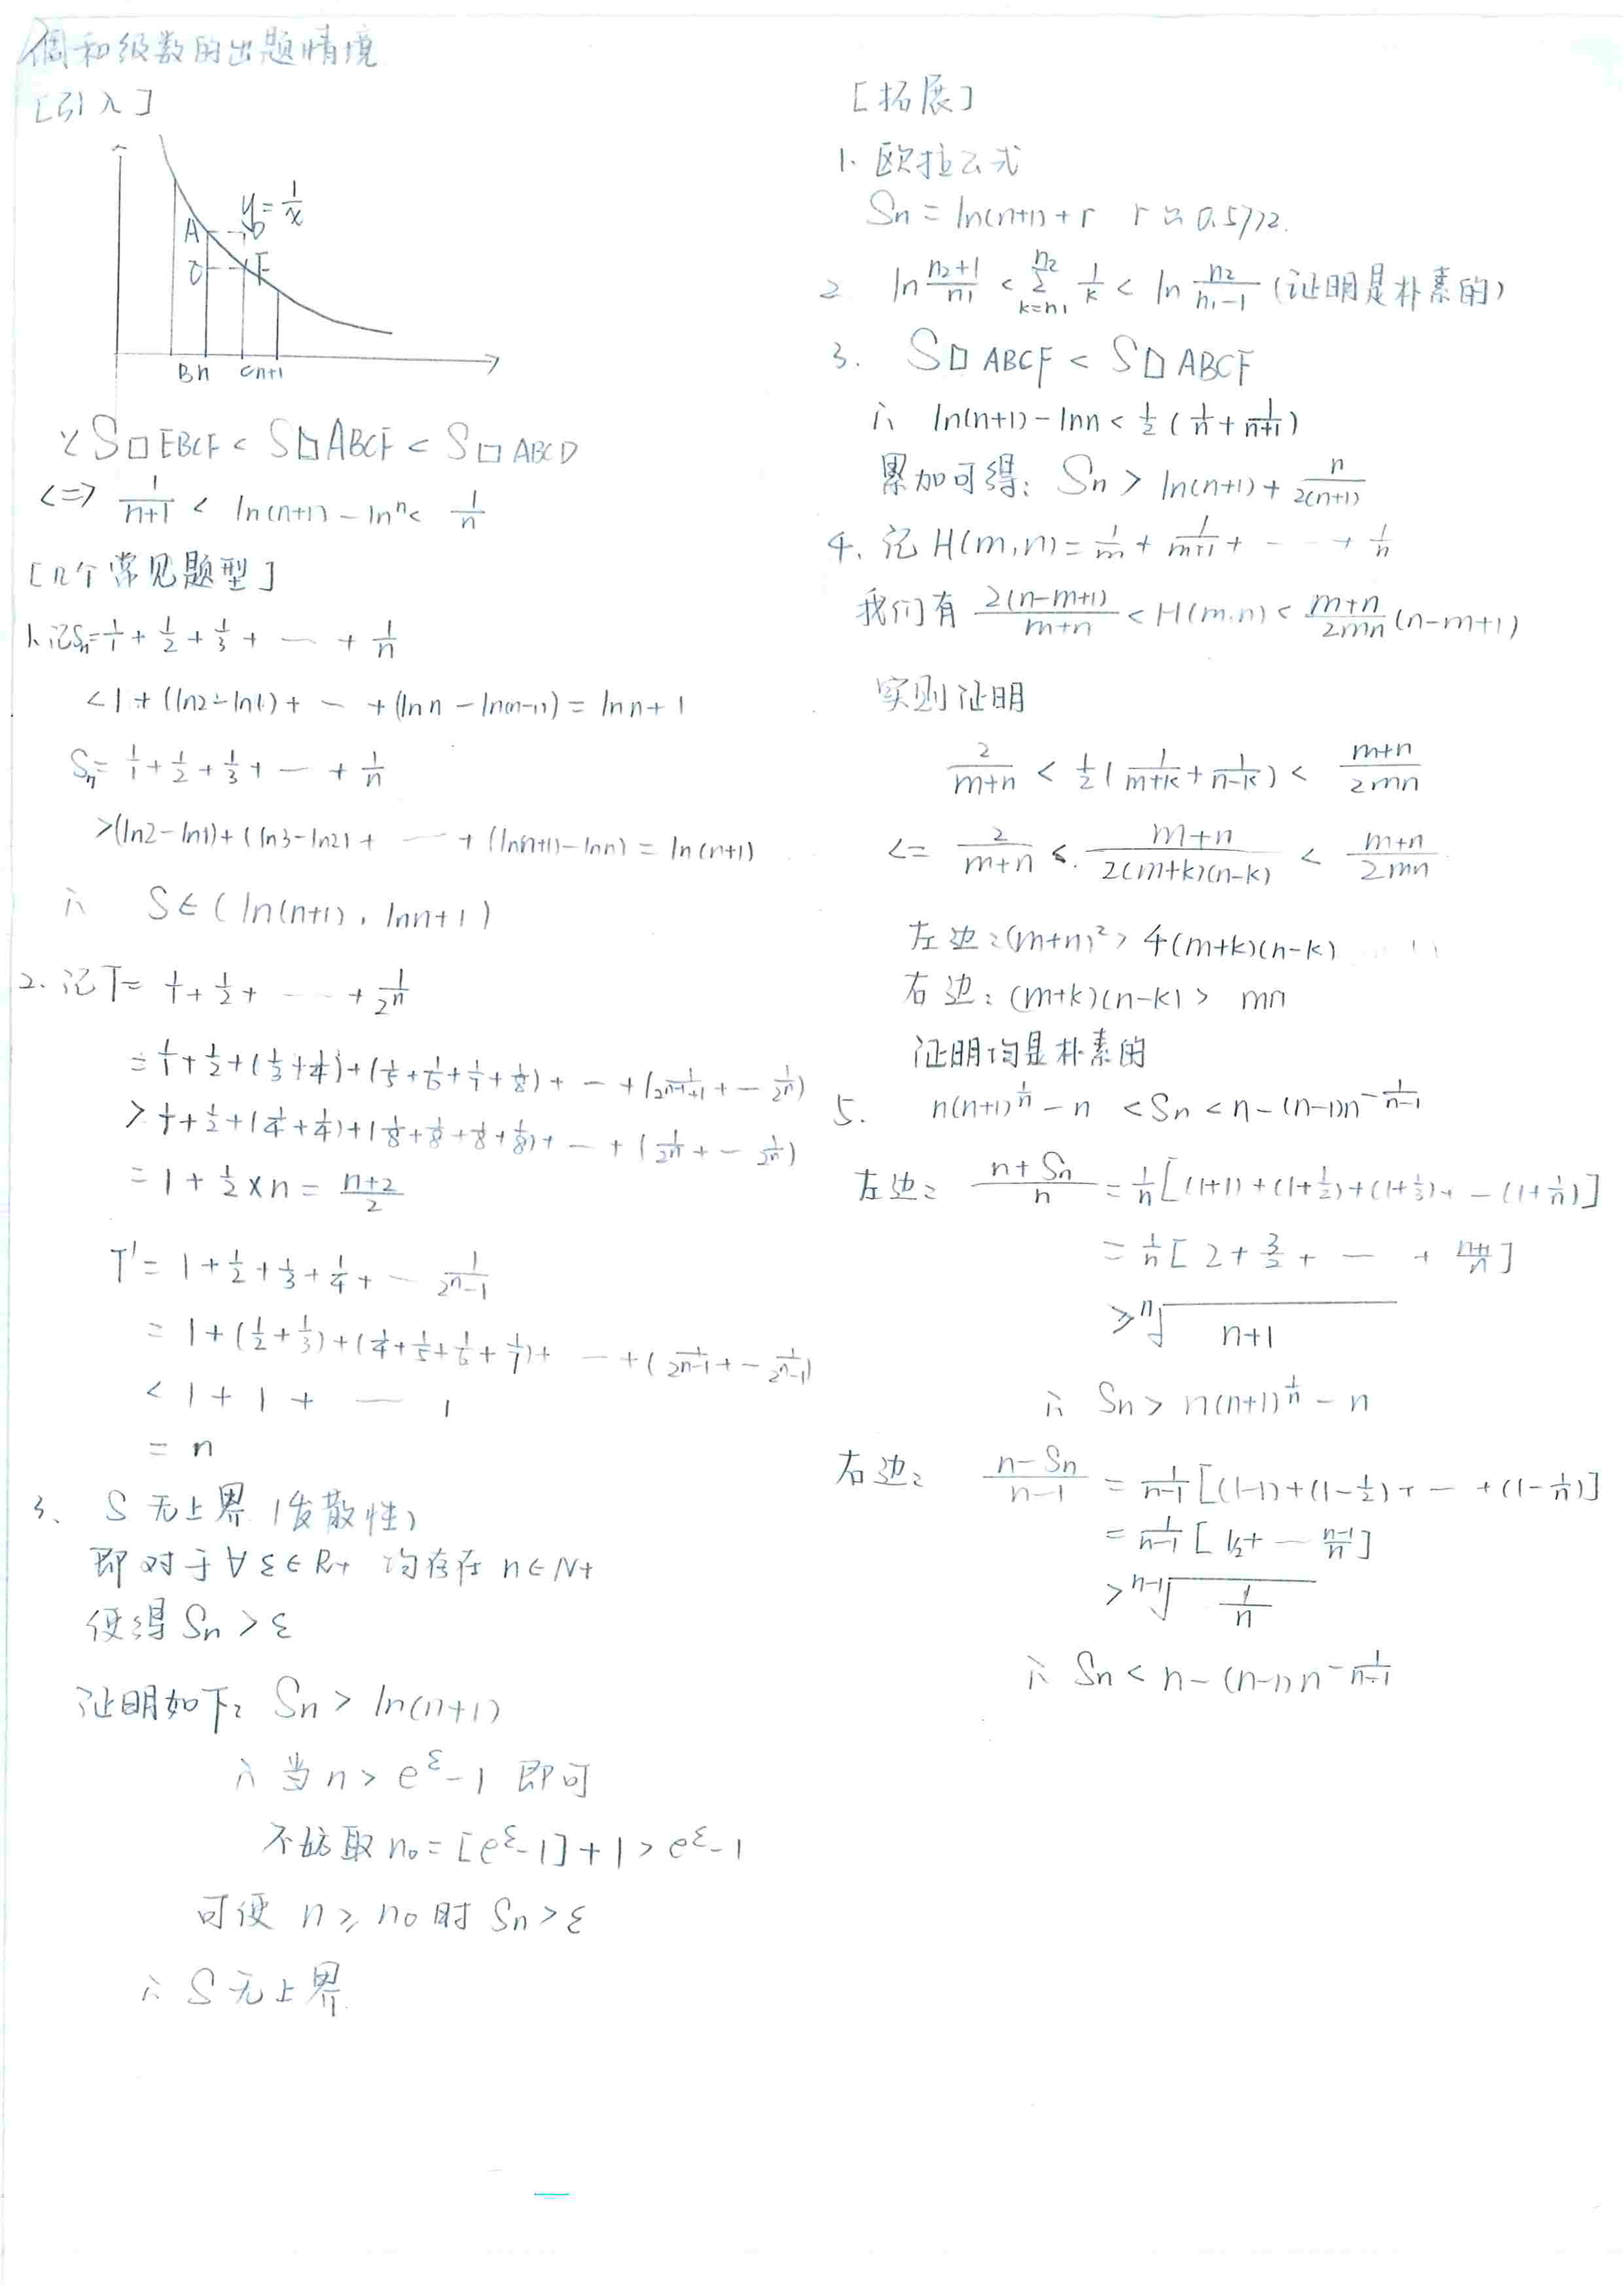 调和级数的出题情境
[引入]
y=1/x
A D
E F
B n C n+1
∵ S□EBCF < S□ABCF < S□ABCD
<=> 1/(n+1) < ln(n+1) - ln n < 1/n
[几个常见题型]
1. 记Sn = 1/1 + 1/2 + 1/3 + … + 1/n
< 1 + (ln2 - ln1) + … + (ln n - ln(n-1)) = ln n + 1
Sn = 1/1 + 1/2 + 1/3 + … + 1/n
> (ln2 - ln1) + (ln3 - ln2) + … + (ln(n+1) - ln n) = ln(n+1)
∴ S ∈ (ln(n+1), ln n + 1)
2. 记T = 1/1 + 1/2 + … + 1/2^n
= 1/1 + 1/2 + (1/3 + 1/4) + (1/5 + 1/6 + 1/7 + 1/8) + … + (1/(2^(n-1)+1) + … 1/2^n)
> 1/1 + 1/2 + (1/4 + 1/4) + (1/8 + 1/8 + 1/8 + 1/8) + … + (1/2^n + … 1/2^n)
= 1 + 1/2 × n = (n+2)/2
T' = 1 + 1/2 + 1/3 + 1/4 + … 1/(2^n-1)
= 1 + (1/2 + 1/3) + (1/4 + 1/5 + 1/6 + 1/7) + … + (1/2^(n-1) + … 1/(2^n-1))
< 1 + 1 + … 1
= n
3、 S 无上界 (发散性)
即对于 ∀ε∈R+ 均存在 n∈N+
使得 Sn > ε
证明如下: Sn > ln(n+1)
∴ 当 n > e^ε - 1 即可
不妨取 n₀ = [e^ε - 1] + 1 > e^ε - 1
可使 n ≥ n₀ 时 Sn > ε
∴ S 无上界
[拓展]
1. 欧拉公式
Sn = ln(n+1) + r r ≈ 0.5772.
2 ln (n₂+1)/n₁ < Σ(k=n₁ to n₂) 1/k < ln n₂/(n₁-1) (证明是朴素的)
3. S□ABCF < S□ABCF
∴ ln(n+1) - ln n < 1/2 (1/n + 1/(n+1))
累加可得: Sn > ln(n+1) + n/(2(n+1))
4. 记 H(m,n) = 1/m + 1/(m+1) + … + 1/n
我们有 2(n-m+1)/(m+n) < H(m,n) < (m+n)/(2mn) (n-m+1)
实则证明
2/(m+n) < 1/2 (1/(m+k) + 1/(n-k)) < (m+n)/(2mn)
<= 2/(m+n) ≤ (m+n)/(2(m+k)(n-k)) < (m+n)/(2mn)
左边: (m+n)² > 4(m+k)(n-k)
右边: (m+k)(n-k) > mn
证明均是朴素的
5. n(n+1)^(1/n) - n < Sn < n - (n-1)n^(-1/(n-1))
左边: (n+Sn)/n = 1/n [(1+1) + (1+1/2) + (1+1/3) + … (1+1/n)]
= 1/n [2 + 3/2 + … + (n+1)/n]
≥ ⁿ√(n+1)
∴ Sn > n(n+1)^(1/n) - n
右边: (n-Sn)/(n-1) = 1/(n-1) [(1-1) + (1-1/2) + … + (1-1/n)]
= 1/(n-1) [1/2 + … (n-1)/n]
> ⁿ⁻¹√(1/n)
∴ Sn < n - (n-1)n^(-1/(n-1))